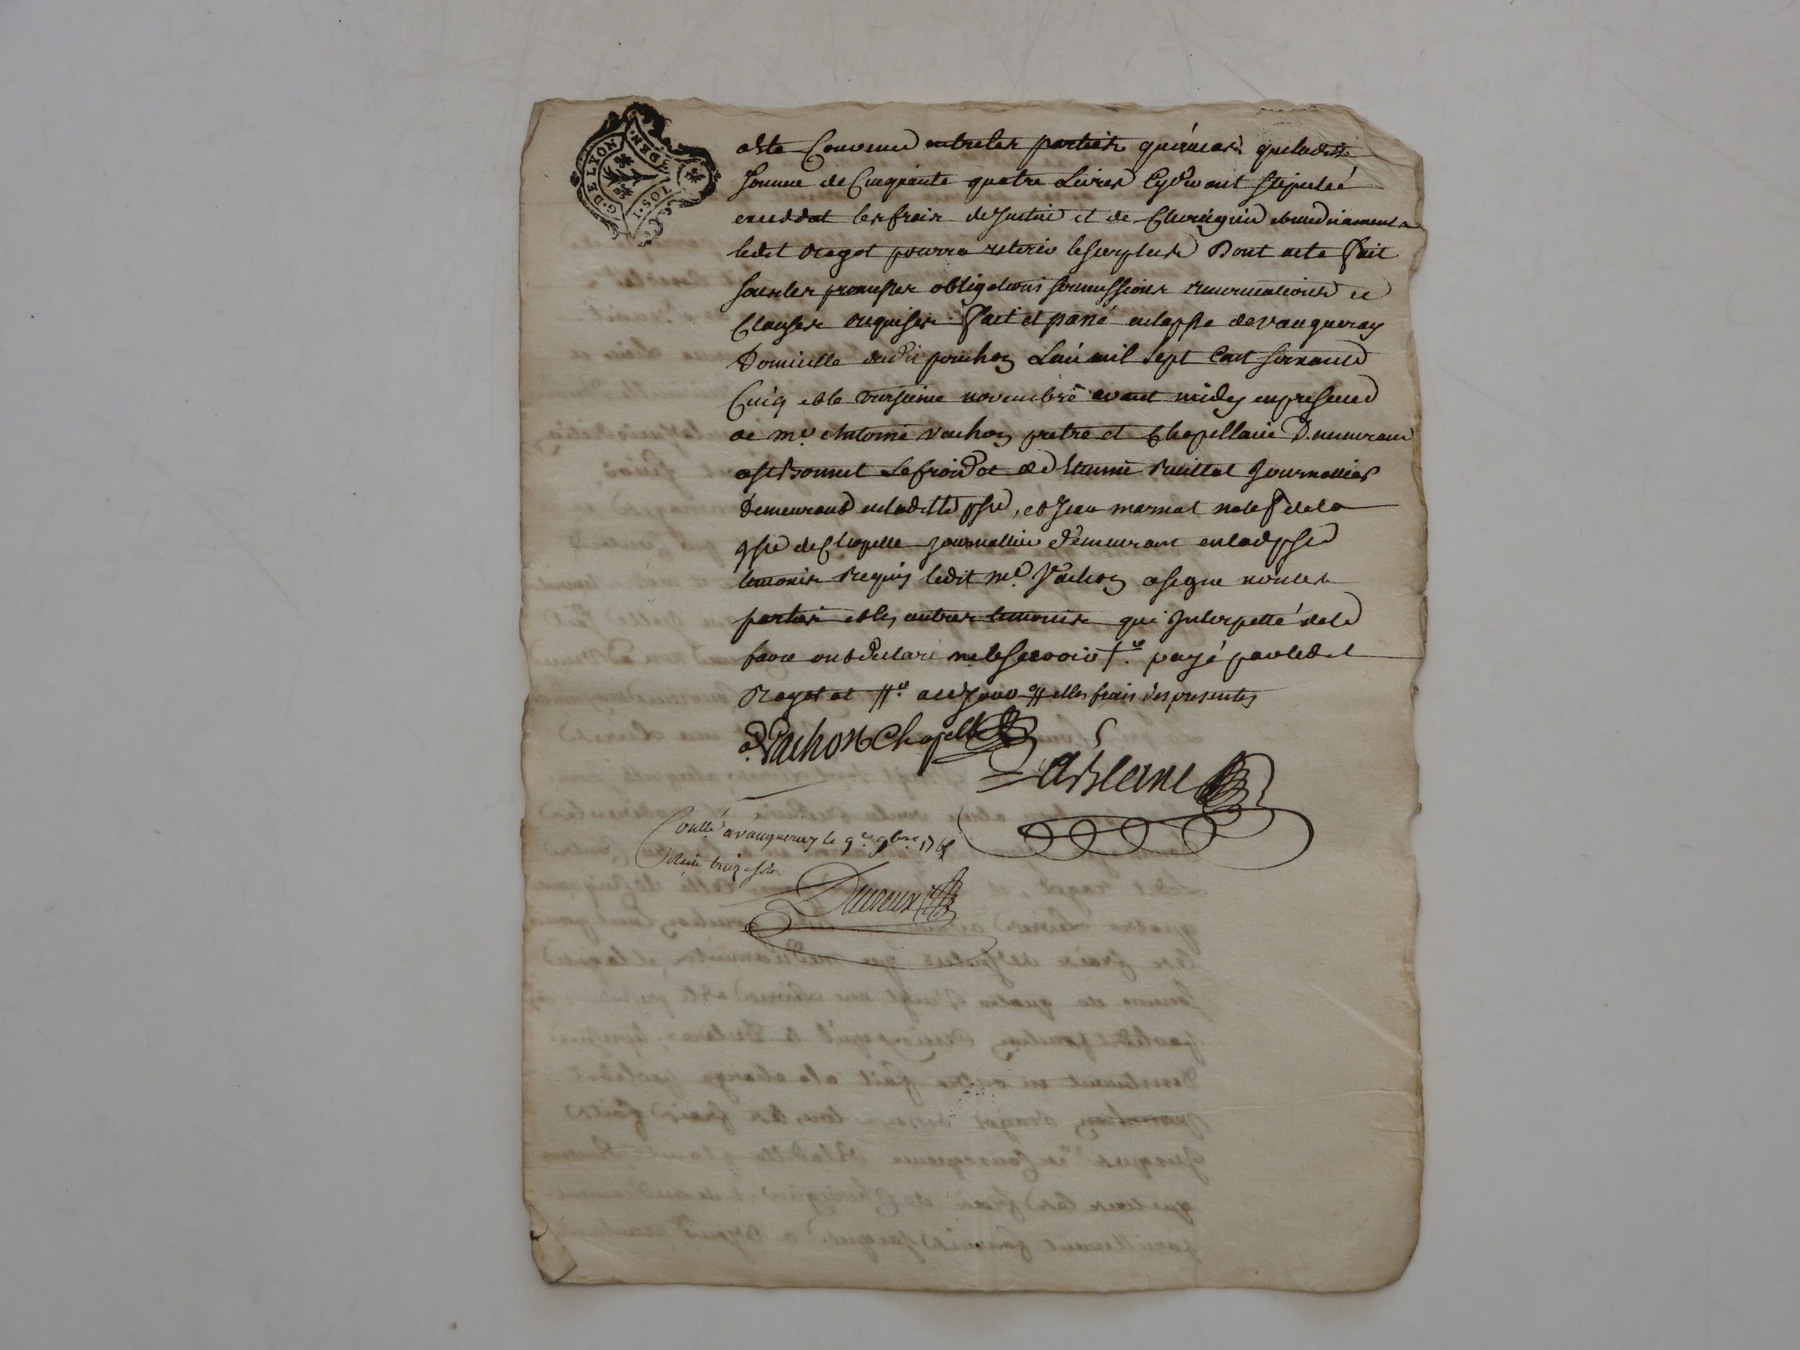 G. DE LYON
1. SOL. DEN.
este Convenu entre les parties qu'en cas que ladite
somme de Cinquante quatre Livres Cy devant stipulée
exceddat les frais de Justice et de Chirurgien et medicaments
ledit Ragot pourra retenir le surplus Dont acte fait
sous les promesses obligations soumissions renonciations et
Clauses requises. fait et passé en la psse de vaugneray
Domicille dudit ponchon L'an mil sept Cent soixante
Cinq et le novembre avant midy en presence
de me Antoine Vachon pretre et Chapellain Demeurant
a st Bonnet Le froid et de Etienne Journallier
Demeurant en ladite psse, et Jean natif de la
psse de Chapelle Journallier demeurant en lad psse
temoins requis ledit me Vachon a signé non les
parties et les autres temoins qui Interpellé de le
faire ont declaré ne le scavoir payé par ledit
Ragot et les frais des presentes
Vachon Chapell
Conllé a vaugneray le 9e 9bre 1765
Reçu treize sols